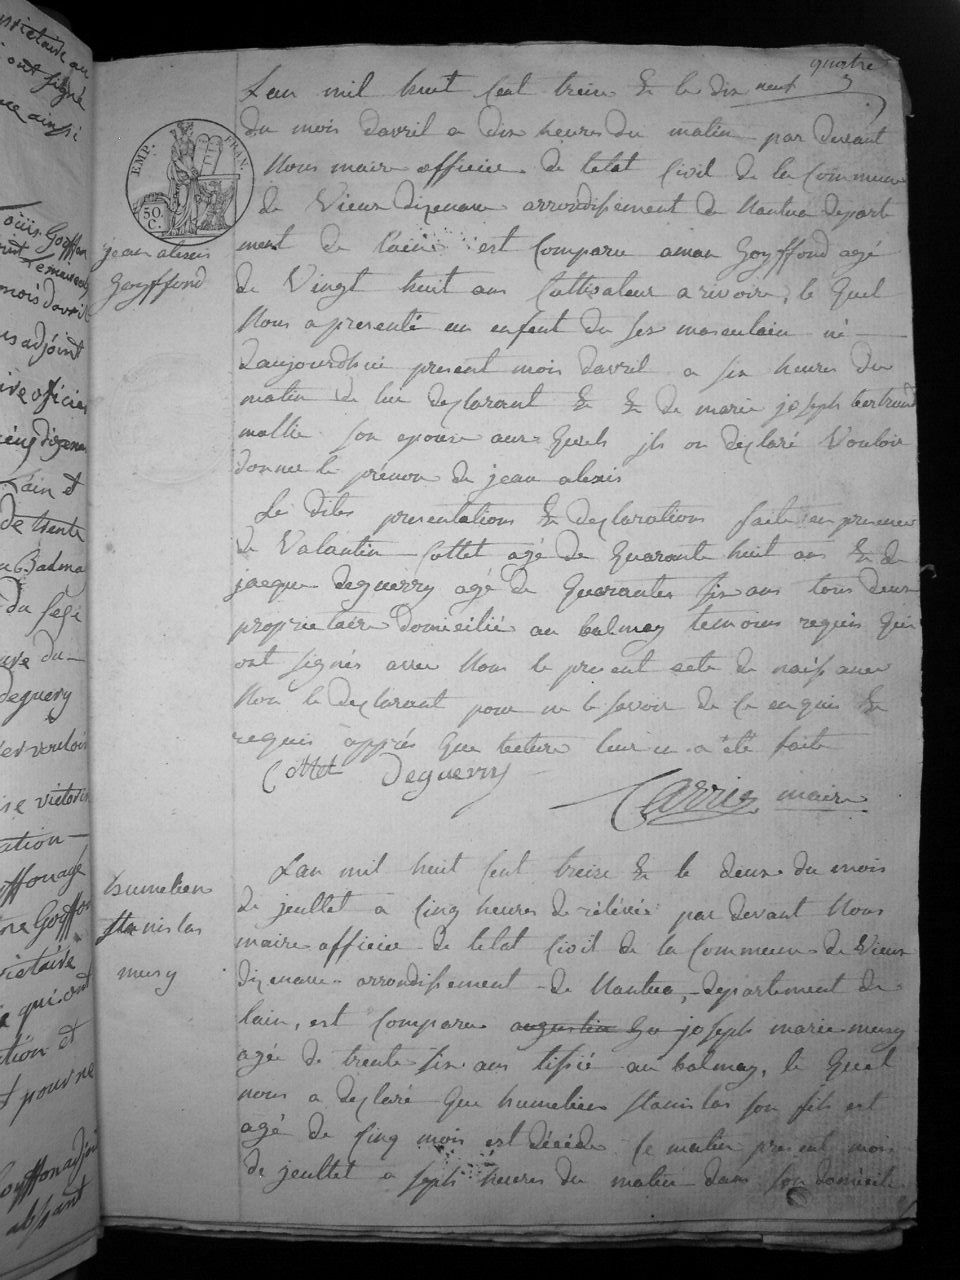 quatre
Lan mil huit Cent treize & le dix neuf
du mois davril a dix heures du matin par devant
Nous maire officier de letat Civil de la Commune
de Vieux dizenave arrondissement de Nantua depart
ment de l'ain est Comparu aman Goyffond agé
de Vingt huit ans Cultivateur a rivoire, le quel
Nous a presenté un enfant du sex masculain né
daujourdhui present mois davril a six heures du
matin de lui declarant & & de marie joseph bertrand
mollie son epouse aux quels ils on declaré Vouloir
donner le prénon de jean alexis
Les dites presentations & declarations faite en presence
de Valantin Cottet agé de quarante huit ans & de
jacque deguerry agé de quarantes six ans tous deux
proprietaire domicilié au balmay temoins requis qui
ont signés avec Nous le present acte de naissance
Non le declarant pour ne le savoir de Ce enquis &
requis apprés que lecture leur en a été faite
Cottet Deguerry
Carrier maire
EMP. FRAN.
50
C.
jean alexis
Goyffond
Lan mil huit Cent treize & le deux du mois
de jeullet a Cinq heures de rélévée par devant Nous
maire officier de letat Civil de la Commune de Vieux
dizenave arrondissement de Nantua, departement de
lain, est Comparu augustin Go joseph marie musy
agé de trente six ans tissié au balmay, le quel
nous a declaré que humelien stanislas son fils est
agé de Cinq mois est décédé Ce matin present mois
de jeullet a sept heures du matin dans son domicile
humelien
stanislas
musy
prietaire au
ont signé
ainsi
Goyffon
mois davril
adjoint
officier
dizenave
l'ain et
de trente
Balmay
du sexe
du
deguery
vouloir
victoire
ation
Goyffon
rietaire
qui ont
tion et
pour ne
Goyffon adjoint
absant